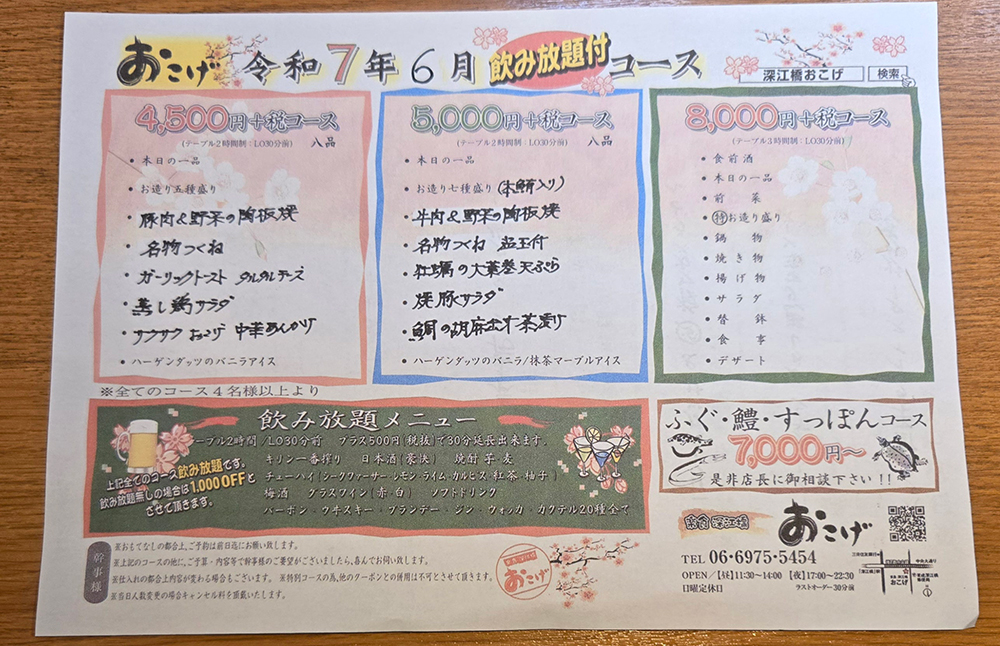 おこげ 令和7年6月 飲み放題付コース
深江橋おこげ 検索
4,500円+税コース
(テーブル2時間制：LO30分前) 八品
・本日の一品
・お造り五種盛り
・豚肉&野菜の陶板焼
・名物つくね
・ガーリックトースト タルタルチーズ
・蒸し鶏サラダ
・サクサクおこげ 中華あんかけ
・ハーゲンダッツのバニラアイス
5,000円+税コース
(テーブル2時間制：LO30分前) 八品
・本日の一品
・お造り七種盛り(本鮪入り)
・牛肉&野菜の陶板焼
・名物つくね 岩玉付
・牡蠣の大葉巻天ぷら
・焼豚サラダ
・鯛の胡麻だれ茶漬け
・ハーゲンダッツのバニラ/抹茶マーブルアイス
8,000円+税コース
(テーブル3時間制：LO30分前)
・食前酒
・本日の一品
・前菜
・特お造り盛り
・鍋物
・焼き物
・揚げ物
・サラダ
・替鉢
・食事
・デザート
※全てのコース4名様以上より
飲み放題メニュー
テーブル2時間/LO30分前 プラス500円(税抜)で30分延長出来ます。
キリン一番搾り 日本酒(豪快) 焼酎 芋 麦
チューハイ(シークヮーサー・レモン・ライム・カルピス 紅茶 柚子)
梅酒 グラスワイン(赤・白) ソフトドリンク
バーボン・ウヰスキー・ブランデー・ジン・ウォッカ・カクテル20種全て
上記全てのコース飲み放題です。
飲み放題無しの場合は1,000OFFと
させて頂きます。
ふぐ・鱧・すっぽんコース
7,000円〜
是非店長に御相談下さい!!
幹事様
※おもてなしの都合上、ご予約は前日迄にお願い致します。
※上記のコースの他に、ご予算・内容等で幹事様のご要望がございましたら、喜んでお伺い致します。
※仕入れの都合上内容が変わる場合もございます。 ※特別コースの為、他のクーポンとの併用は不可とさせて頂きます。
※当日人数変更の場合キャンセル料を頂戴いたします。
おこげ
深江橋 おこげ
TEL 06・6975・5454
OPEN/【昼】11:30〜14:00 【夜】17:00〜22:30
日曜定休日 ラストオーダー30分前